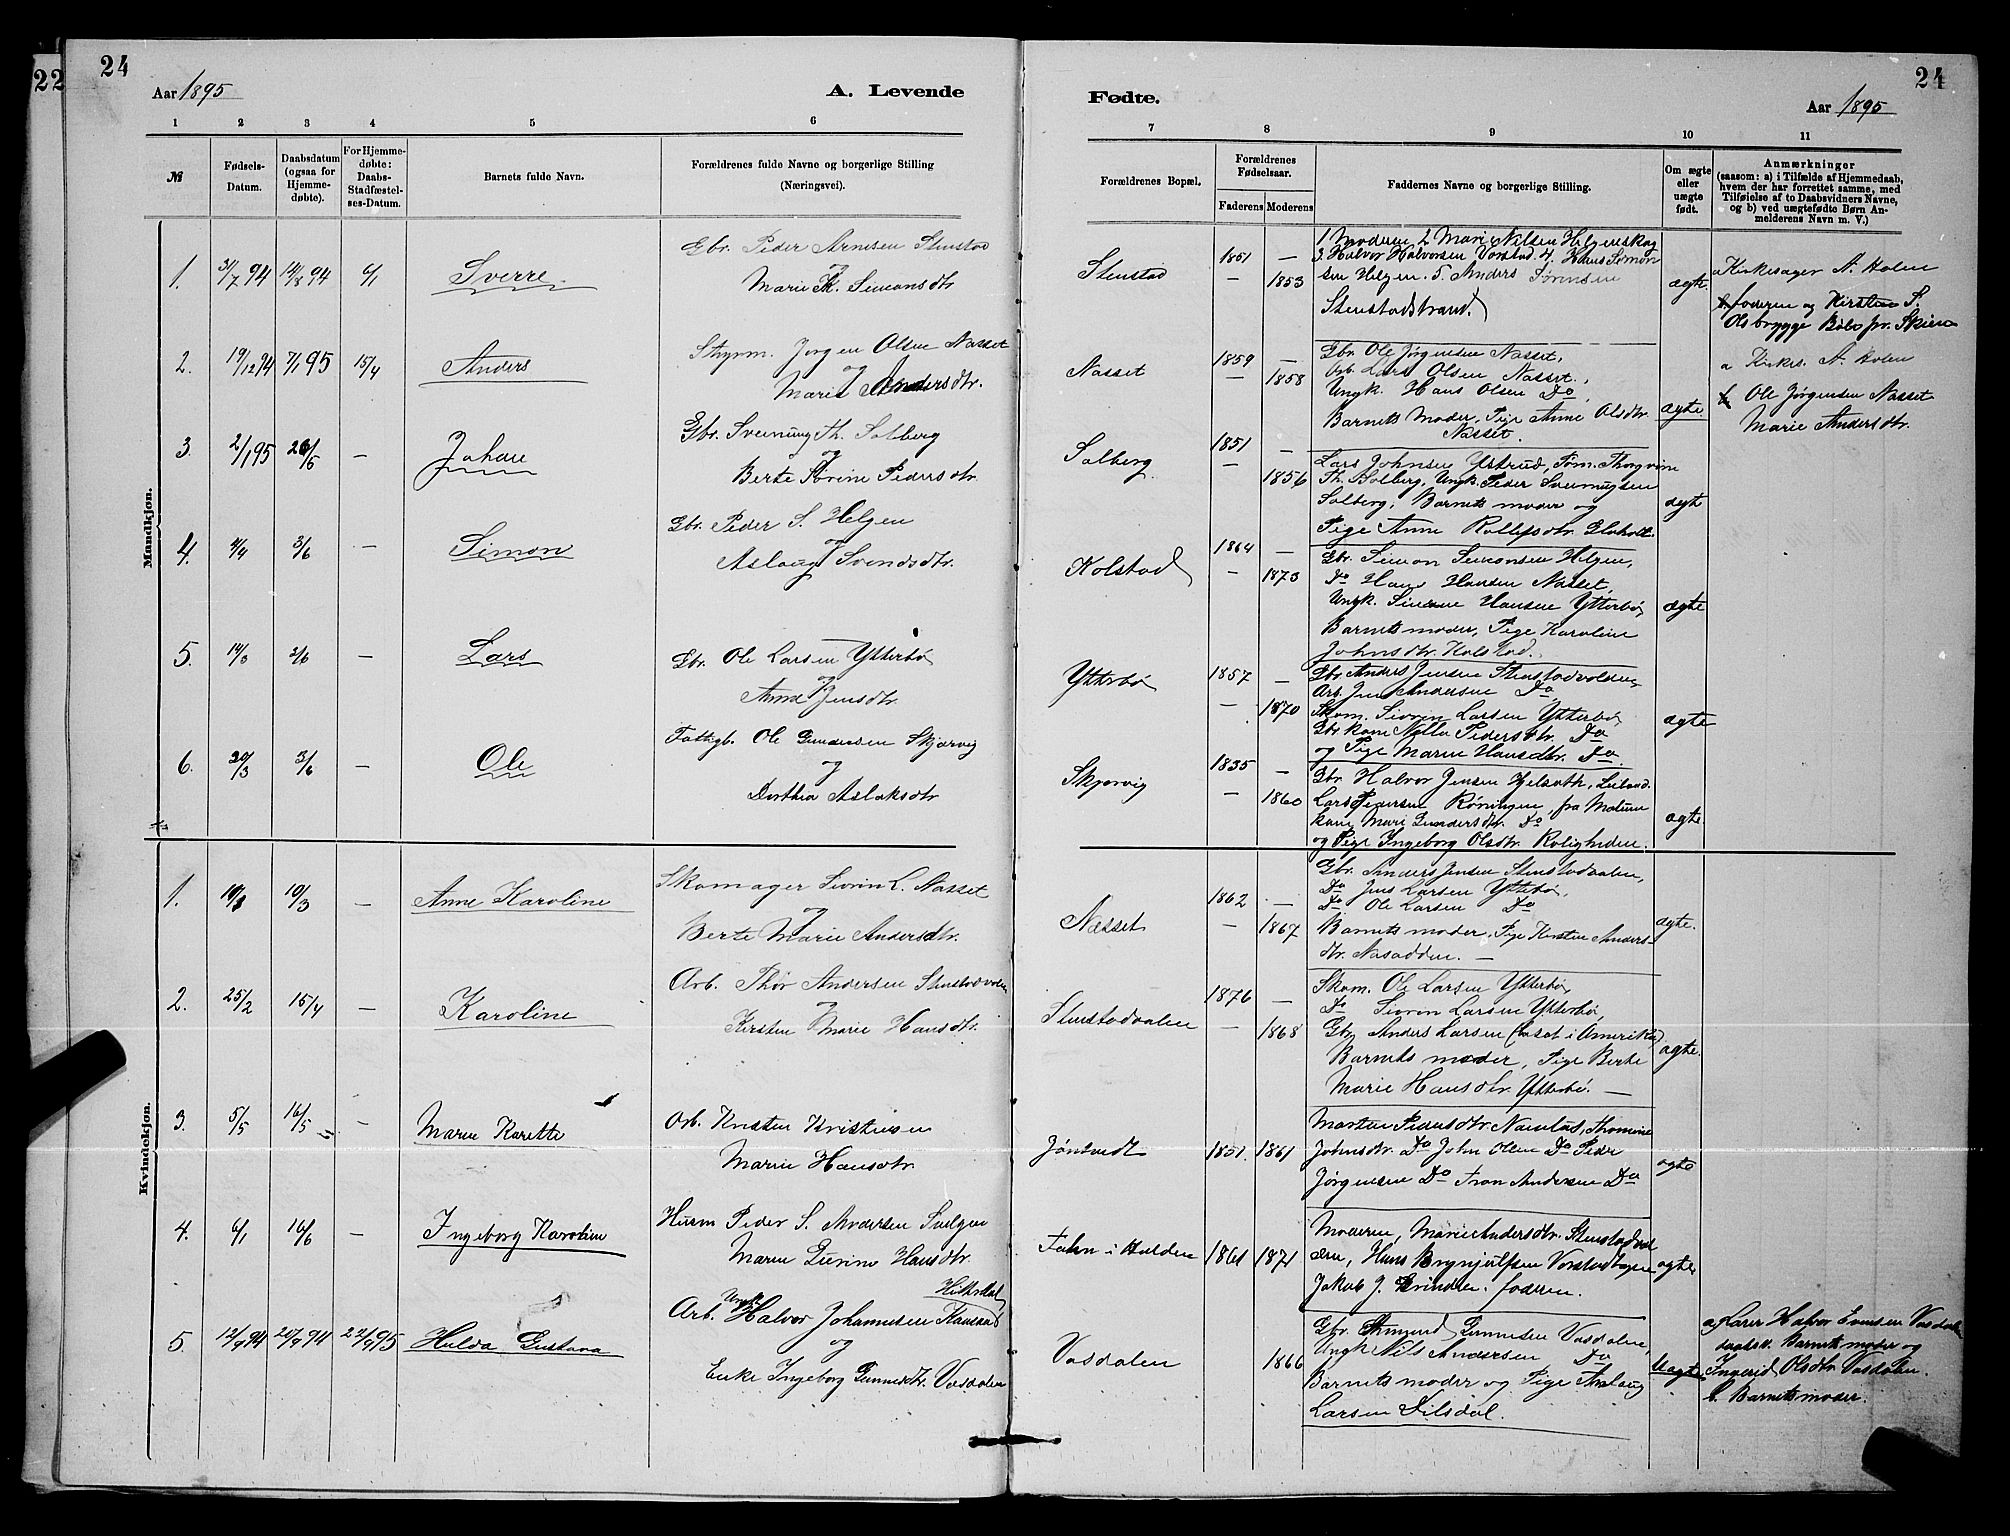 22
24
24
Aar 1895
A. Levende
Fødte.
Aar 1895
1 2 3 4 5 6
7 8 9 10 11
№
Fødsels-Datum.
Daabsdatum (ogsaa for Hjemme-døbte).
For Hjemme-døbte: Daabs-Stadfæstel-ses-Datum.
Barnets fulde Navn.
Forældrenes fulde Navne og borgerlige Stilling (Næringsvei).
Forældrenes Bopæl.
Forældrenes Fødselsaar.
Faderens Moderens
Faddernes Navne og borgerlige Stilling.
Om ægte eller uægte født.
Anmærkninger
(saasom: a) i Tilfælde af Hjemmedaab, hvem der har forrettet samme, med Tilføielse af to Daabsvidners Navne, og b) ved uægtefødte Børn An-melderens Navn m. V.)
Mandkjøn.
1. 31/7 94 12/8 94 6/1 Sverre.
Gbr. Peder Arnesen Stenstad
og
Marie K. Simonsdtr
Stenstad
1851 —
— 1853
1 Moderen, 2 Mari Nilsen Helgenskog
3 Halvor Halvorsen Vorstad 4. Hans Simon
sen Helgen. 5. Anders Sørensen
Stenstadstrand.
ægte.
a Kirkesager A. Holen
b. faderen og Kirstine S.
Olsbrygge Bøle pr. Skien
2. 19/12 94 7/1 95 15/4 Anders
Styrm. Jørgen Olsen Nasset
og
Marie Andersdtr.
Nasset
1859 —
— 1858
Gbr. Ole Jørgensen Nasset,
Arb. Lars Olsen Nasset,
Ungk. Hans Olsen Do,
Barnets Moder, Pige Anne Olsdtr.
Nasset.
ægte
a Kirkes. A. Holen
b Ole Jørgensen Nasset
Marie Andersdtr.
3. 2/1 95 26/5 — Johan
Gbr. Sveinung Th. Solberg
og
Berte Sørine Pedersdtr.
Solberg
1851 —
— 1856
Lars Johnsen Ystrud, Tøm. Thorgrim
Th. Solberg, Ungk. Peder Sveinugsen
Solberg, Barnets moder og
Pige Anne Rollefsdtr. Gloholt.
ægt
4. 4/4 3/6 — Simon
Gbr. Peder S. Helgen
og
Aslaug Svendsdtr.
Kolstad
1864 —
— 1873
Gbr. Simon Simonsen Helgen,
Do Hans Hansen Nasset,
Ungk. Simen Hansen Ytterbø
Barnets moder, Pige Karoline
Johnsdtr. Kolstad.
ægte
5. 14/3 2/6 — Lars
Gbr. Ole Larsen Ytterbø
og
Anne Jensdtr.
Ytterbø
1857 —
— 1870
Gbr Anders Jensen Stenstadvolden,
Arb. Jens Andersen Do
Skom. Sivrin Larsen Ytterbø
Gbr. kone Nella Pedersdtr. Do
og Pige Maren Hansdtr. Do
ægte
6. 20/3 3/6 — Ole
Fattigl. Ole Gundersen Skjærvig
og
Dorthea Aslaksdtr
Skjærvig
1835 —
— 1860
Gbr. Halvor Jensen Hjelseth, Leiland.
Lars Pedersen Rønningen, fra Melum
kone Mari Gundersdtr. Do
og Pige Ingeborg Olsdtr. Roligheden.
ægte.
Kvindekjøn.
1. 10/3 — Anne Karoline
Skomager Sivrin L. Nasset
og
Berte Marie Andersdtr.
Næsset
1862 —
— 1867
Gbr. Anders Jensen Stenstadvalen,
Do Jens Larsen Ytterbø,
Do Ole Larsen Do
Barnets moder, Pige Kirsten Anders-
dtr. Nasodden. —
ægte.
2. 25/2 15/4 — Karoline
Arb. Thor Andersen Stenstadvolen
og
Kirsten Marie Hansdtr.
Stenstadvalen
1876 —
— 1868
Skom. Ole Larsen Ytterbø
Do Sivrin Larsen Ytterbø,
Gbr Anders Larsen (bosat i Amerika)
Barnets moder, Pige Berte
Marie Hansdtr. Ytterbø. —
ægte.
3. 5/5 16/5 — Maren Karette
Arb. Kristen Kristensen
Maren Hansdtr.
Jøntvedt
1851. 1861
Marten Pedersdtr. Naeslas, Thomine
Johnsdtr. Do John Olsen Do Peder
Jørgensen Do Tron Andersen Do
ægte
4. 6/1 16/6 — Ingeborg Karoline
Husm Peder S. Andersen Svelgen
Maren Gurine Hansdtr.
Fahn i Holden
1861 1871
Moderen, Marie Andersdtr. Stenstadval
den, Hans Brynjulfsen Vorstadhagen
Jakob J. Grinden. faderen.
ægte
5. 12/9 94 20/9 94 22/9 95 Hulda Gustava
Hitterdal
Arb. Ungk Halvor Johannesen Kaasad
og
Enke Ingeborg Gunnesdtr. Vasdalen
Vasdalen
1866
Gbr. Amund Gunnesen Vasdalen,
Ungk Nils Andersen Do
Barnets moder og Pige Aslaug
Larsen Dilsdal.
Uægte
a Lærer Halvor Evensen Vasdalen
Barnets moder og
Ingerid Olsdtr. Vasdalen.
b. Barnets moder.